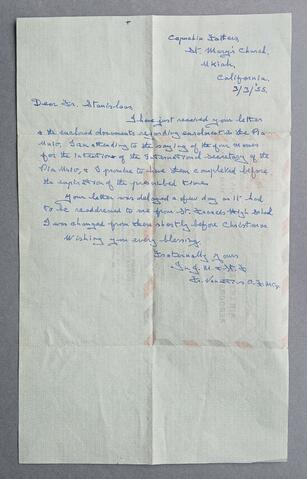 Capuchin Fathers
St. Mary's Church,
Ukiah,
California.
3/3/55.
Dear Fr. Stanislaus,
I have just received your letter
& the enclosed documents regarding enrolment in the Pia
Unio. I am attending to the saying of the four Masses
for the intentions of the International secretary of the
Pia Unio, & I promise to have them completed before
the expiration of the prescribed time.
Your letter was delayed a few days as it had
to be readdressed to me from St. Francis High School
I was changed from there shortly before Christmas
Wishing you every blessing,
Fraternally Yours
In J. M. &
Fr. O. F. M. Cap.